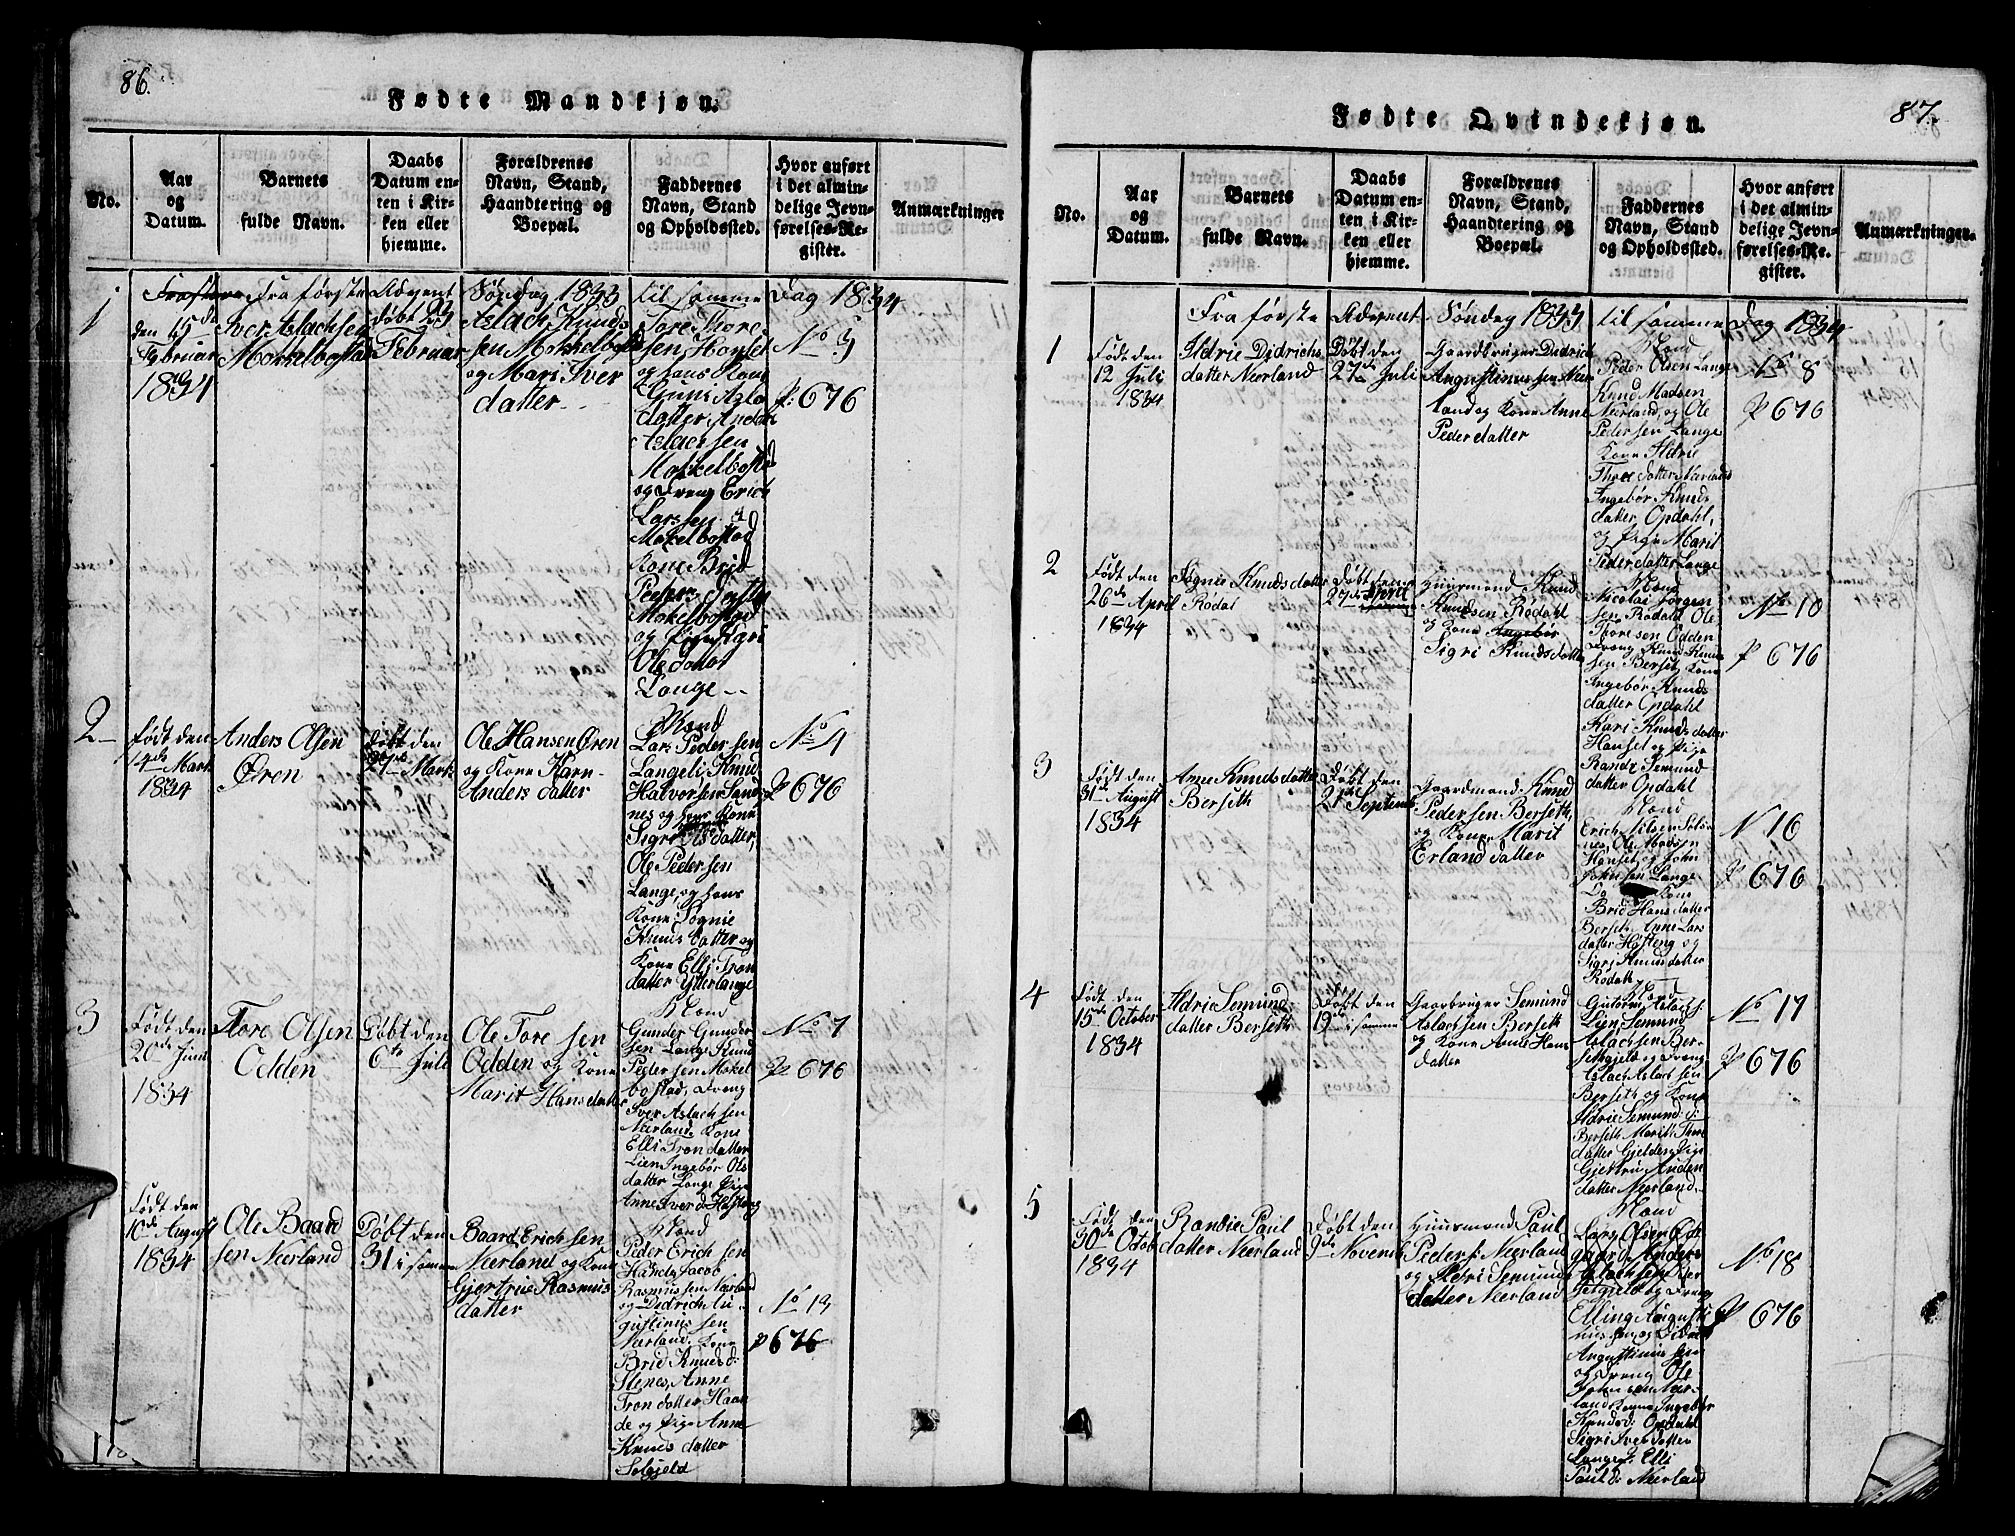 86.
Fødte Mandkjøn.
No.
Aar
og
Datum.
Barnets
fulde Navn.
Daabs
Datum en-
ten i Kir-
ken eller
hjemme.
Forældrenes
Navn, Stand,
Haandtering og
Boepæl.
Faddernes
Navn, Stand
og Opholdssted.
Hvor anført
i det almin-
delige Jevn-
førelses-Re-
gister.
Anmærkninger
Fra første Advent Søndag 1833 til samme Dag 1834
1
den 15de
Februar
1834
Iver Aslachsen
Mokkelbostad
døbt 23
Februar
Aslach Knud
sen Mokkelbost
og Mari Iver
datter
Tore Thore
sen Hanset
og hans Kone
Guni Asla
datter Anders
Aslachsen
Mokkelbostad
og Dreng Erich
Larssen
Mokelbostad
Kone Brid
Peders
Mokelbostad
og Pige Sigri
Ole datter
Lange
No 3
P: 676
2
født den
14de Marts
1834
Anders Olsen
Øren
døbt den
27de Marts
Ole Hansen Øren
og Kone Karn
Anders datter
Mand
Lars Peder sen
Langeli Knud
Halvorsen Sand
nes og hans Kone
Sigri Ols datter,
Ole Peder sen
Lange, og hans
Kone Søgnie
Knuds datter og
Kone Elli Tron
datter Ytterlange
No 4
P 676
3
Født den
20de Juni
1834
Tore Olsen
Odden
Døbt den
6te Juli
Ole Tore sen
Odden og Kone
Marit Hans datter
Mand
Gunder Gunder
sen Lange Knud
Peder sen Mokel
bostad, Dreng
Iver Aslach sen
Neerland. Kone
Elli Tron datter
Lien Ingebør Ols
datter Lange Pige
Anne Iver d Høsteng
No 7
P 676
4
Født den
10de August
1834
Ole Baard
sen Neerland
Døbt den
31 i samme
Baard Erich sen
Neerland og Kone
Gjertrue Rasmus
datter
Mand
Peder Erich sen
Haade Jacob
Rasmus sen Nærland
og Didrich Au
gustinus sen
Nærland. Kone
Brid Knudsd:
Stenes, Anne
Tron datter Haan
de og Pige Anne
Knuds datter
Solgjeld
No 13
P 676
87.
Fødte Qvindekjøn.
No.
Aar
og
Datum.
Barnets
fulde Navn.
Daabs
Datum en-
ten i Kir-
ken eller
hjemme.
Forældrenes
Navn, Stand,
Haandtering og
Boepæl.
Faddernes
Navn, Stand
og Opholdssted.
Hvor anført
i det almin-
delige Jevn-
førelses-Re-
gister.
Anmærkninger.
Fra første Advent Søndag 1833 til samme Dag 1834
1
Født den
12 Juli
1834
Ildrie Didrichs
datter Neerland
Døbt den
27de Juli
Gaardbruger Didrich
Augustinus sen Neer
land og Kone Anne
Peder datter
Mand
Peder Olsen Lange
Knud Madsen
Neerland, og Ole
Peder sen Lange
Kone Ildrie
Thore datter Nærland
Ingebør Knuds
datter Opdahl,
og Pige Marit
Peder datter Lange
No 8
P 676
2
Født den
26de April
1834
Søgnie Knuds datter
Rødal
Døbt den
27de April
Huusmand Knud
Knudsen Rødahl
og Kone Ingebør
Sigri Knuds datter
Mand
Nicolai Jørgen
sen Rødahl Ole
Thore sen Odden
Dreng Knud Knud
sen Berset Kone
Ingebør Knuds
datter Opdahl
Kari Knuds datter
Hanset og Pige
Randi Semund
datter Opdahl
No 10
P 676
3
Født den
31de August
1834
Anne Knuds datter
Berseth
Døbt den
21de Septemb
Gaardmand Knud
Peder sen Berseth,
og Kone Marit
Erland datter
Mand
Erich Nilsen Solsn
nes, Ole Madsen
Hanset og John
John sen Lange
Kone
Brid Hans datter
Berseth Anne Lars
datter Høsteng og
Sigri Knuds datter
Rødahl
N 16
P 676
4
Født den
15de October
1834
Ildrie Semund
datter Berseth
Døbt den
19de i samme
Gaardbruger Semund
Aslachsen Berseth
og Kone Anne Hans
datter
Guttorm Aslachs
Lien Semund
Aslachsen Ber
og Dreng
Aslach Aslach sen
Berseth og Kone
Ildrie Semund:
Berseth Marith Thore
datter Gjelde, Pige
Gjertru Anders
datter Neerland
No 17
P 676
5
Født den
30de Octob
1834
Randie Paul
datter Neerland
Døbt den
9de Novemb
Huusmand Paul
Peders: Neerland
og Sigri Semund
datter Neerland
Mand
Lars Olsen Øst
gaard Anders
Aslachsen
og Dreng
Elling Augusti
nus sen og Didrich
Augustinus sen
og Dreng Ole
John sen Neer
land Kone Ingebør
Knudsd: Opdahl
Sigri Iver datter
Lange P. Elli
Paul d: Neerland
No 18
P 676